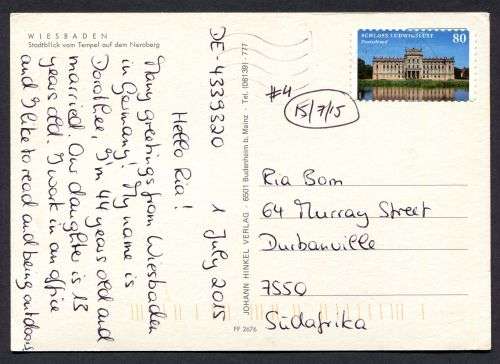 WIESBADEN
Stadtblick vom Tempel auf dem Neroberg
DE-4339320
1 July 2015
Hello Ria!
Many greetings from Wiesbaden
in Germany! My name is
Dorothee, I'm 44 years old and
married. Our daughter is 13
years old. I work in an office
and I like to read and being outdoors
JOHANN HINKEL VERLAG · 6501 Budenheim b. Mainz · Tel. (06139) 777
PF 2676
SCHLOSS LUDWIGSLUST
Deutschland
80
#4
15/7/15
Ria Bom
64 Murray Street
Durbanville
7550
Südafrika